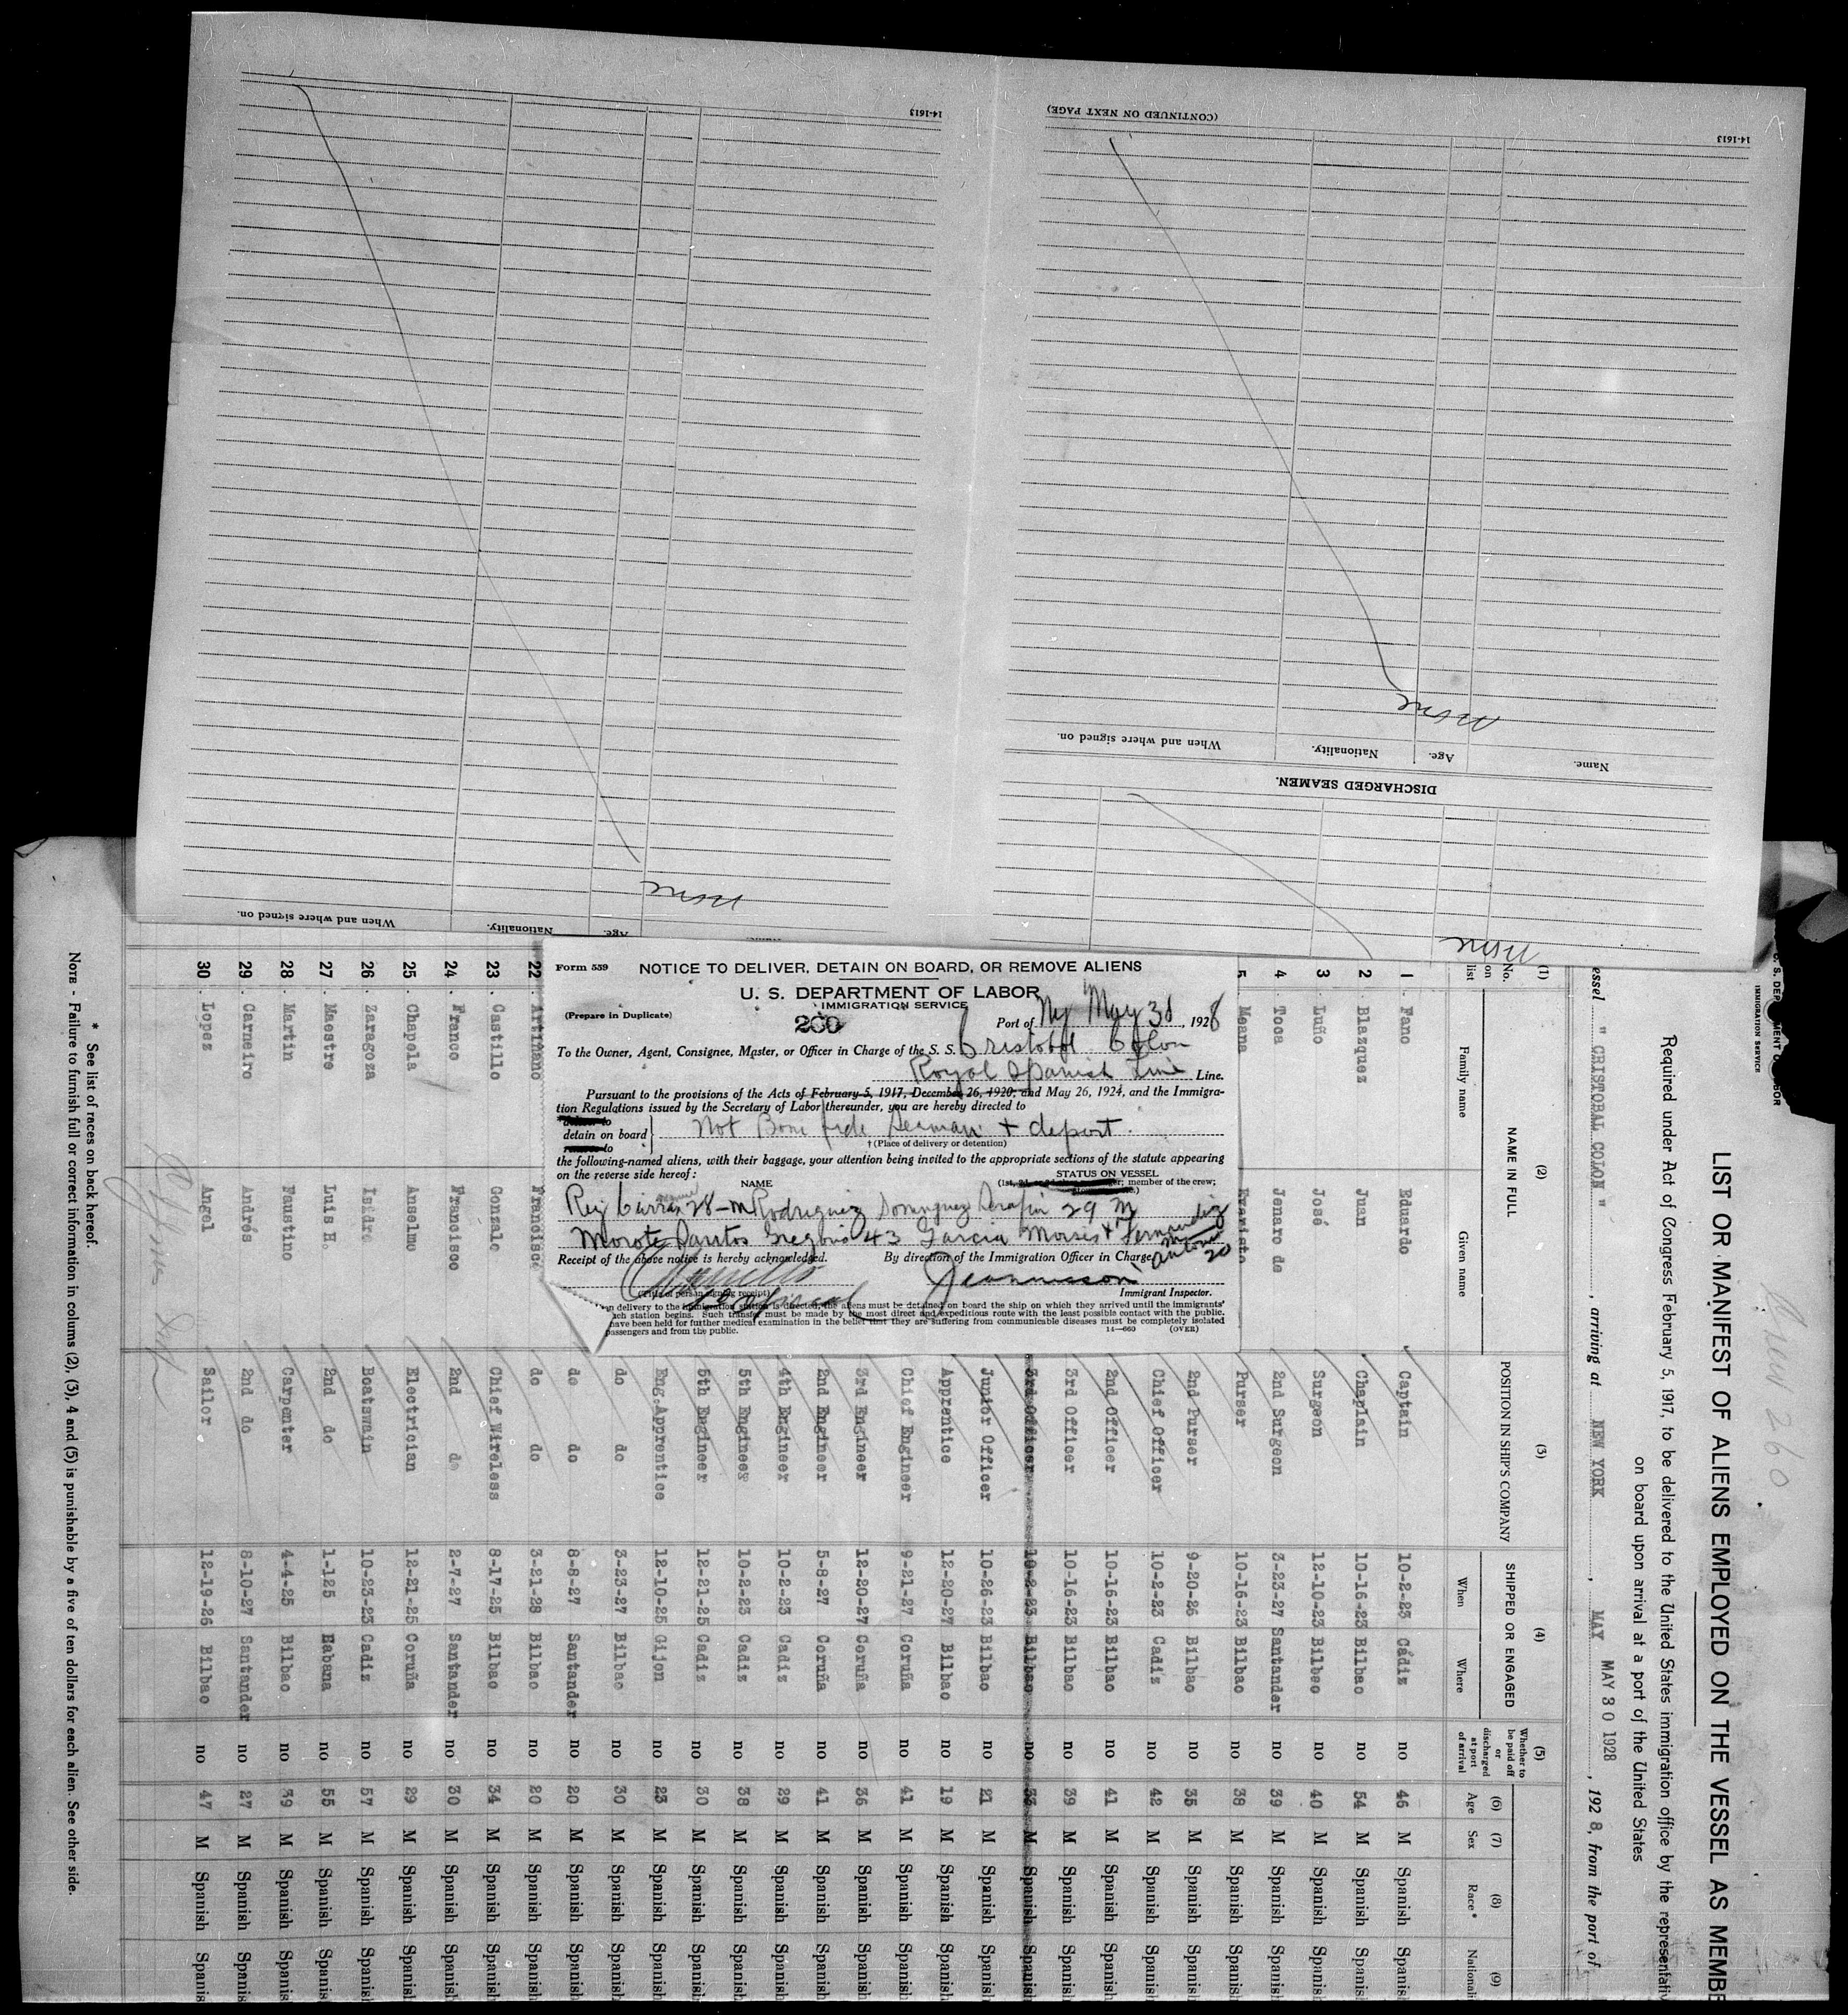 14-1613
(CONTINUED ON NEXT PAGE)
14-1613
None
When and where signed on.
Nationality.
Age.
Name.
DISCHARGED SEAMEN.
None
None
When and where signed on.
Nationality.
Age.
Form 559
NOTICE TO DELIVER, DETAIN ON BOARD, OR REMOVE ALIENS
U. S. DEPARTMENT OF LABOR
IMMIGRATION SERVICE
(Prepare in Duplicate)
260
Port of Ny May 30, 1928
To the Owner, Agent, Consignee, Master, or Officer in Charge of the S. S. Cristobal Colon
Royal Spanish Line Line.
Pursuant to the provisions of the Acts of February 5, 1917, December 26, 1920, and May 26, 1924, and the Immigra-
tion Regulations issued by the Secretary of Labor thereunder, you are hereby directed to
detain on board } Not Bona fide Seaman + deport.
† (Place of delivery or detention)
the following-named aliens, with their baggage, your attention being invited to the appropriate sections of the statute appearing
on the reverse side hereof:
STATUS ON VESSEL
NAME
member of the crew;
28-M Rodriguez Dominguez Serafin 29 M
Morote Santos Gregorio 43 Garcia Moises + Fernandez
Antonio 20
Receipt of the above notice is hereby acknowledged.
By direction of the Immigration Officer in Charge.
(Title of person signing receipt)
Immigrant Inspector.
delivery to the immigration station is directed, the aliens must be detained on board the ship on which they arrived until the immigrants'
such station begins. Such transfer must be made by the most direct and expeditious route with the least possible contact with the public.
have been held for further medical examination in the belief that they are suffering from communicable diseases must be completely isolated
passengers and from the public.
14—660
(OVER)
Crew 260
IMMIGRATION SERVICE
LIST OR MANIFEST OF ALIENS EMPLOYED ON THE VESSEL AS MEMBE
Required under Act of Congress February 5, 1917, to be delivered to the United States immigration office by the representativ
on board upon arrival at a port of the United States
essel " CRISTOBAL COLON ", arriving at NEW YORK, MAY MAY 30 1928, 1928, from the port of
(1) (2) (3) (4) (5) (6) (7) (8) (9)
No. on list NAME IN FULL POSITION IN SHIP'S COMPANY SHIPPED OR ENGAGED Whether to be paid off or discharged at port of arrival Age Sex Race * Nationali
Family name Given name When Where
1 Fano Eduardo Captain 10-2-23 Cádiz no 46 M Spanish Spanis
2 Blazquez Juan Chaplain 10-16-23 Bilbao no 54 M Spanish Spanis
3 Luño José Surgeon 12-10-23 Bilbao no 40 M Spanish Spanis
4 Toca Jenaro de 2nd Surgeon 3-23-27 Santander no 39 M Spanish Spanis
5 Meana Evaristo Purser 10-16-23 Bilbao no 38 M Spanish Spanis
2nd Purser 9-20-26 Bilbao no 35 M Spanish Spanis
Chief Officer 10-2-23 Cadiz no 42 M Spanish Spanis
2nd Officer 10-16-23 Bilbao no 41 M Spanish Spanis
3rd Officer 10-16-23 Bilbao no 39 M Spanish Spanis
3rd Officer 10-2-23 Bilbao no 33 M Spanish Spanish
Junior Officer 10-26-23 Bilbao no 21 M Spanish Spanis
Apprentice 12-20-27 Bilbao no 19 M Spanish Spanis
Chief Engineer 9-21-27 Coruña no 41 M Spanish Spanis
3rd Engineer 12-20-27 Coruña no 36 M Spanish Spanis
2nd Engineer 5-8-27 Coruña no 41 M Spanish Spanis
4th Engineer 10-2-23 Cadiz no 29 M Spanish Spanis
5th Engineer 10-2-23 Cadiz no 38 M Spanish Spanis
5th Engineer 12-21-25 Cadiz no 30 M Spanish Spanis
Eng. Apprentice 12-10-25 Gijon no 23 M Spanish Spanis
do do 3-23-27 Bilbao no 30 M Spanish Spanis
do do 8-8-27 Santander no 20 M Spanish Spanis
22 Artiñano Francisco do do 3-21-28 Bilbao no 20 M Spanish Spanis
23 Castillo Gonzalo Chief Wireless 8-17-25 Bilbao no 34 M Spanish Spanis
24 Franco Francisco 2nd do 2-7-27 Santander no 30 M Spanish Spanis
25 Chapela Anselmo Electrician 12-21-25 Coruña no 29 M Spanish Spanis
26 Zaragoza Isidro Boatswain 10-23-23 Cadiz no 57 M Spanish Spanis
27 Maestre Luis H. 2nd do 1-125 Habana no 55 M Spanish Spanis
28 Martin Faustino Carpenter 4-4-25 Bilbao no 39 M Spanish Spanis
29 Carneiro Andrés 2nd do 8-10-27 Santander no 27 M Spanish Spanis
30 Lopez Angel Sailor 12-19-26 Bilbao no 47 M Spanish Spanis
* See list of races on back hereof.
NOTE - Failure to furnish full or correct information in colums (2), (3), 4 and (5) is punishable by a five of ten dollars for each alien. See other side.